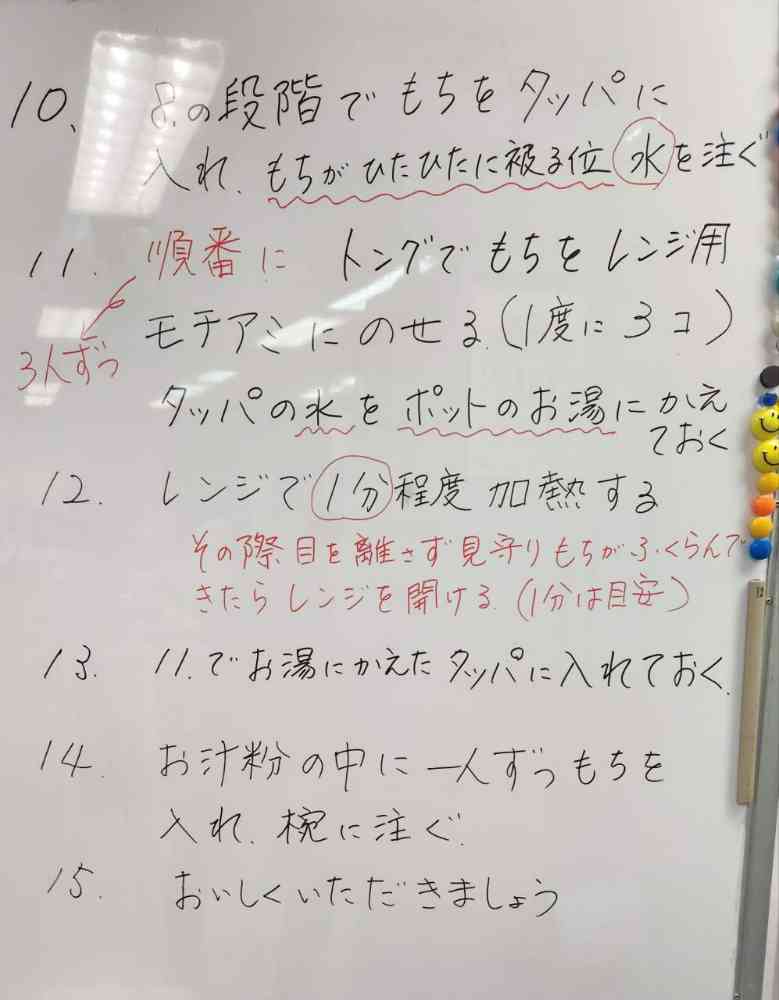 10、 8.の段階でもちをタッパに
入れ、もちがひたひたに被る位水を注ぐ
11. 順番に トングでもちをレンジ用
3人ずつ
モチアミにのせる(1度に3コ)
タッパの水をポットのお湯にかえ
ておく
12. レンジで1分程度 加熱する
その際目を離さず見守りもちがふくらんで
きたらレンジを開ける.(1分は目安)
13. 11.でお湯にかえたタッパに入れておく.
14. お汁粉の中に一人ずつもちを
入れ、椀に注ぐ.
15. おいしくいただきましょう